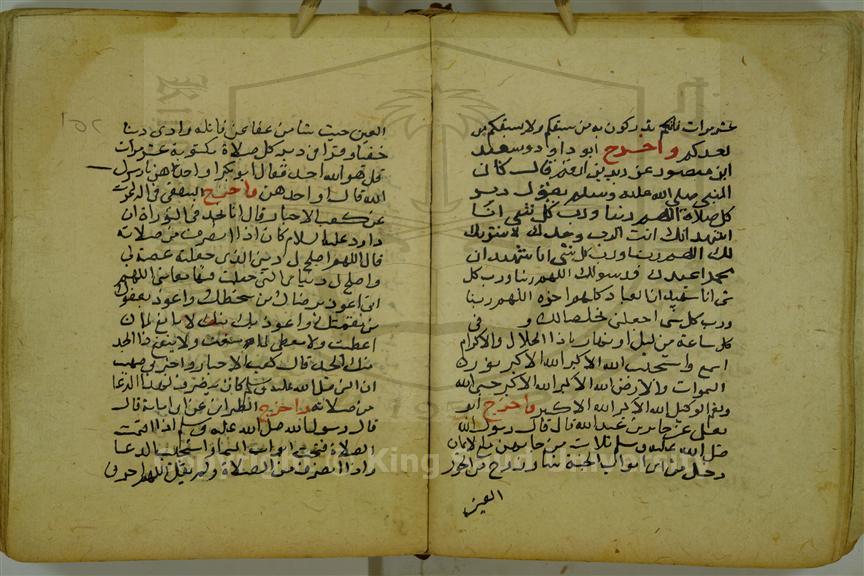 عشر مرات فانكم تدركون به من سبقكم ولا يسبقكم من
بعدكم واخرج ابو داود وسعيد
ابن منصور عن زيد بن ارقم قال كان
النبي صلى الله عليه وسلم يقول دبر
كل صلاة اللهم ربنا ورب كل شي انا
اشهد انك انت الرب وحدك لا شريك
لك اللهم ربنا ورب كل شي انا شهيد ان
محمد اعبدك ورسولك اللهم ربنا ورب كل
شي انا شهيد ان العباد كلهم اخوه اللهم ربنا
ورب كل شي اجعلني مخلصا لك و في
كل ساعة من ليل او نهار يا ذا الجلال والاكرام
اسمع واستجب الله الاكبر الله الاكبر نور
السموات والارض الله الاكبر الله الاكبر حسبي الله
ونعم الوكيل الله الاكبر الله الاكبر واخرج ابو
يعلى عن جابر بن عبد الله قال قال رسول الله
صلى الله عليه وسلم ثلاث من جا بهن مع الايمان
دخل من اي ابواب الجنة شا وزوج من الحور
العين
العين حيث شا من عفا عن قاتله وادى دينا
خفيا وقرا في دبر كل صلاة مكتوبة عشر مرات
قل هو الله احد فقال ابو بكر او احداهن يا رسول
الله قال او احدهن واخرج البيهقي في الدعوات
عن كعب الاحبار قال انا لنجد في التوراة ان
داود عليه السلام كان اذا انصرف من صلاته
قال اللهم اصلح لي ديني الذي جعلته عصمة لي
واصلح لي دنياي التي جعلت فيها معاشي اللهم
اني اعوذ برضاك من سخطك واعوذ بعفوك
من نقمتك واعوذ بك منك لا مانع لما
اعطيت ولا معطي لما منعت ولا ينفع ذا الجد
منك الجد قال كعب الاحبار واخبرني صهيب
ان النبي صلى الله عليه وسلم كان ينصرف بهذا الدعا
من صلاته واخرج الطبراني عن ابي امامة قال
قال رسول الله صلى الله عليه وسلم اذا اقيمت
الصلاة فتحت ابواب السما واستجيب الدعا
واذا انصرف من الصلاة ولم يقل اللهم اجرني
Copyright © King Saud University